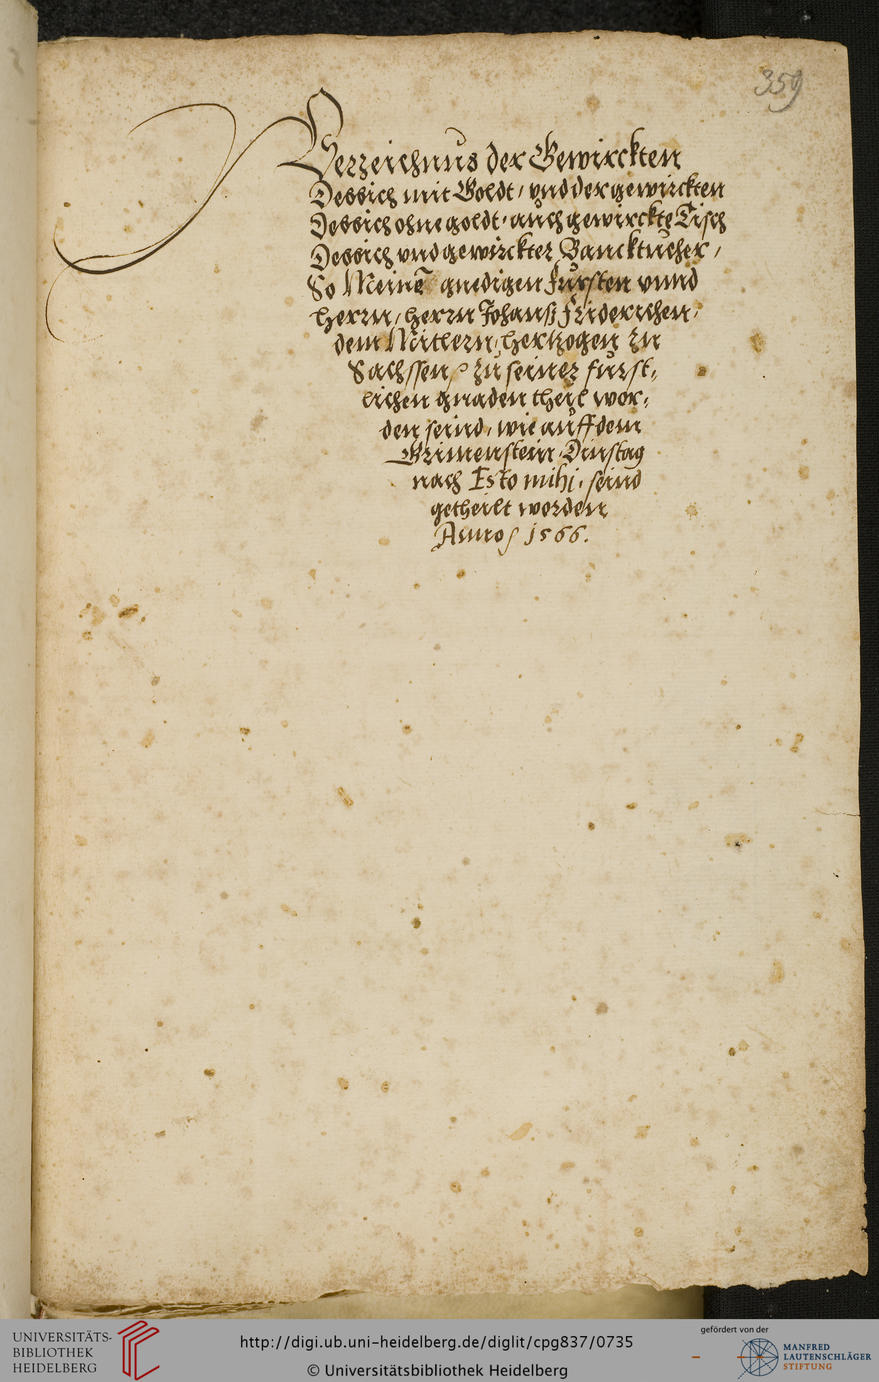 359
Verzeichnus der Gewirckten
Debbich mit Goldt / vnd der gewirckten
Debbich ohne goldt, auch gewirckte Tisch
Debbich vnd gewirckter Bancktucher /
So Meinē gnedigen Fursten vnnd
Herrn / Herrn Johanß Friderichen,
dem Mitlern, Hertzogen zu
Sachssen, zu seiner furst,
lichen gnaden theil wor,
den seind, wie auff dem
Grimenstein, Dinstag
nach Esto mihj, seind
getheilt worden
Anno 1566.
UNIVERSITÄTS-
BIBLIOTHEK
HEIDELBERG
http://digi.ub.uni-heidelberg.de/diglit/cpg837/0735
© Universitätsbibliothek Heidelberg
gefördert von der
MANFRED
LAUTENSCHLÄGER
STIFTUNG